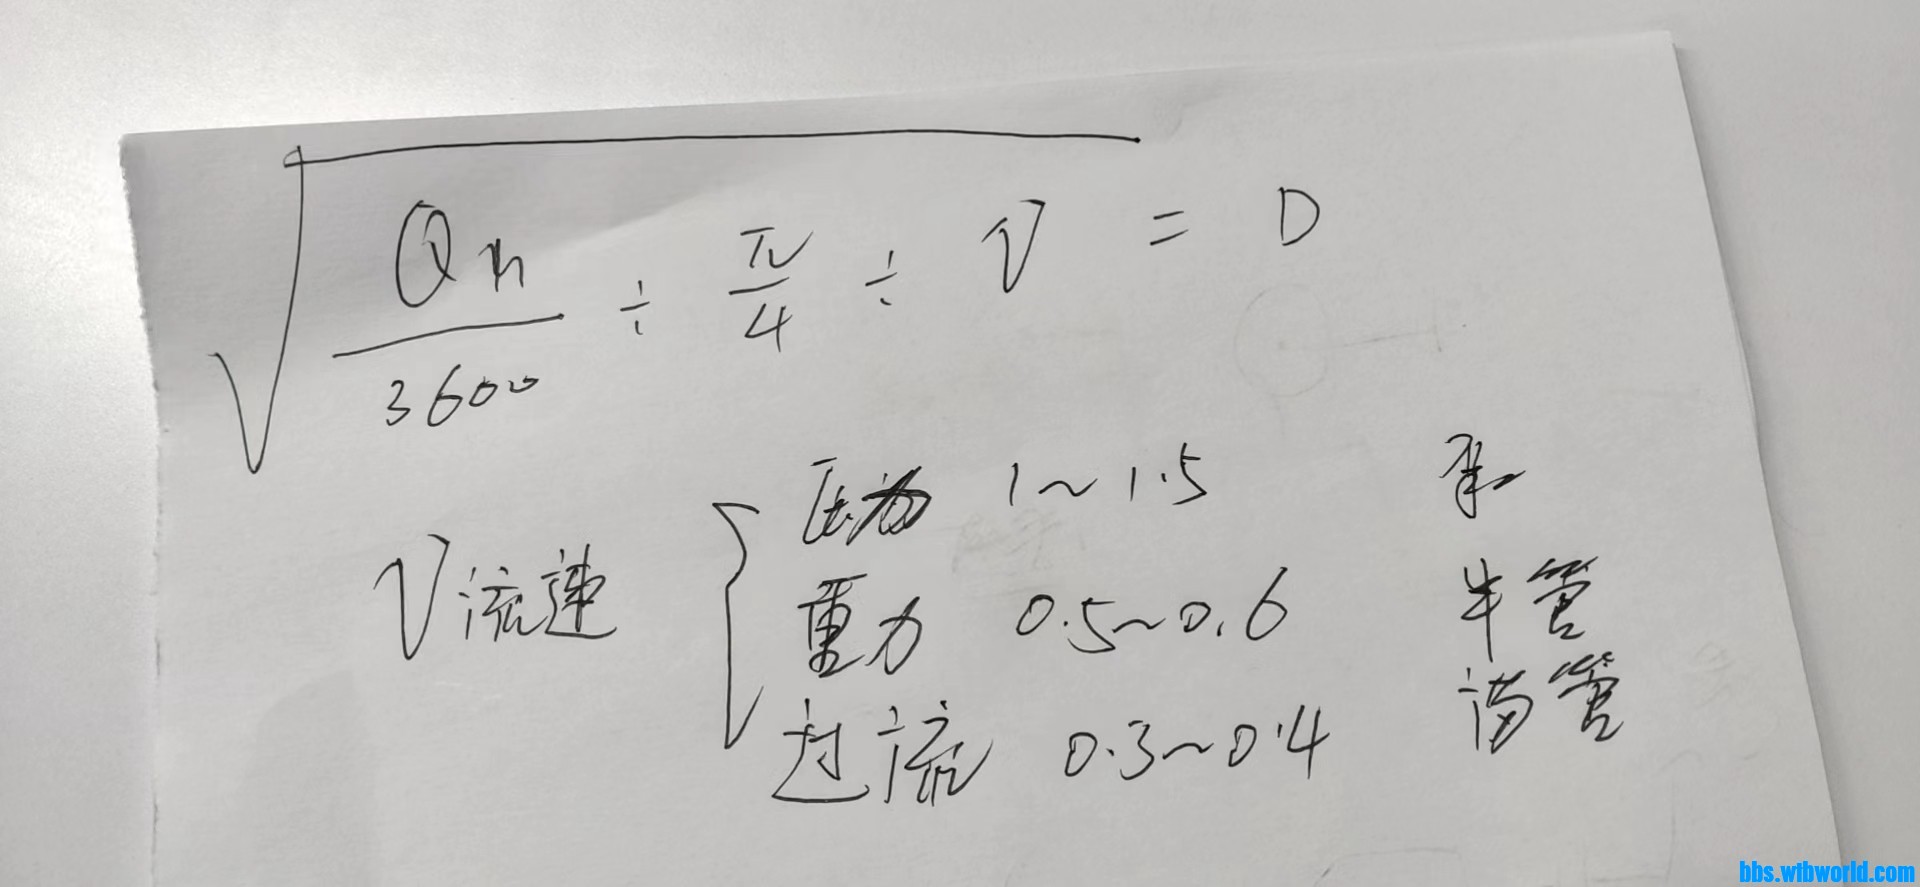 √(Qh/3600 ÷ π/4 ÷ V) = D
V流速
压力 1~1.5 泵
重力 0.5~0.6 半管
过流 0.3~0.4 满管
bbs.wtbworld.com